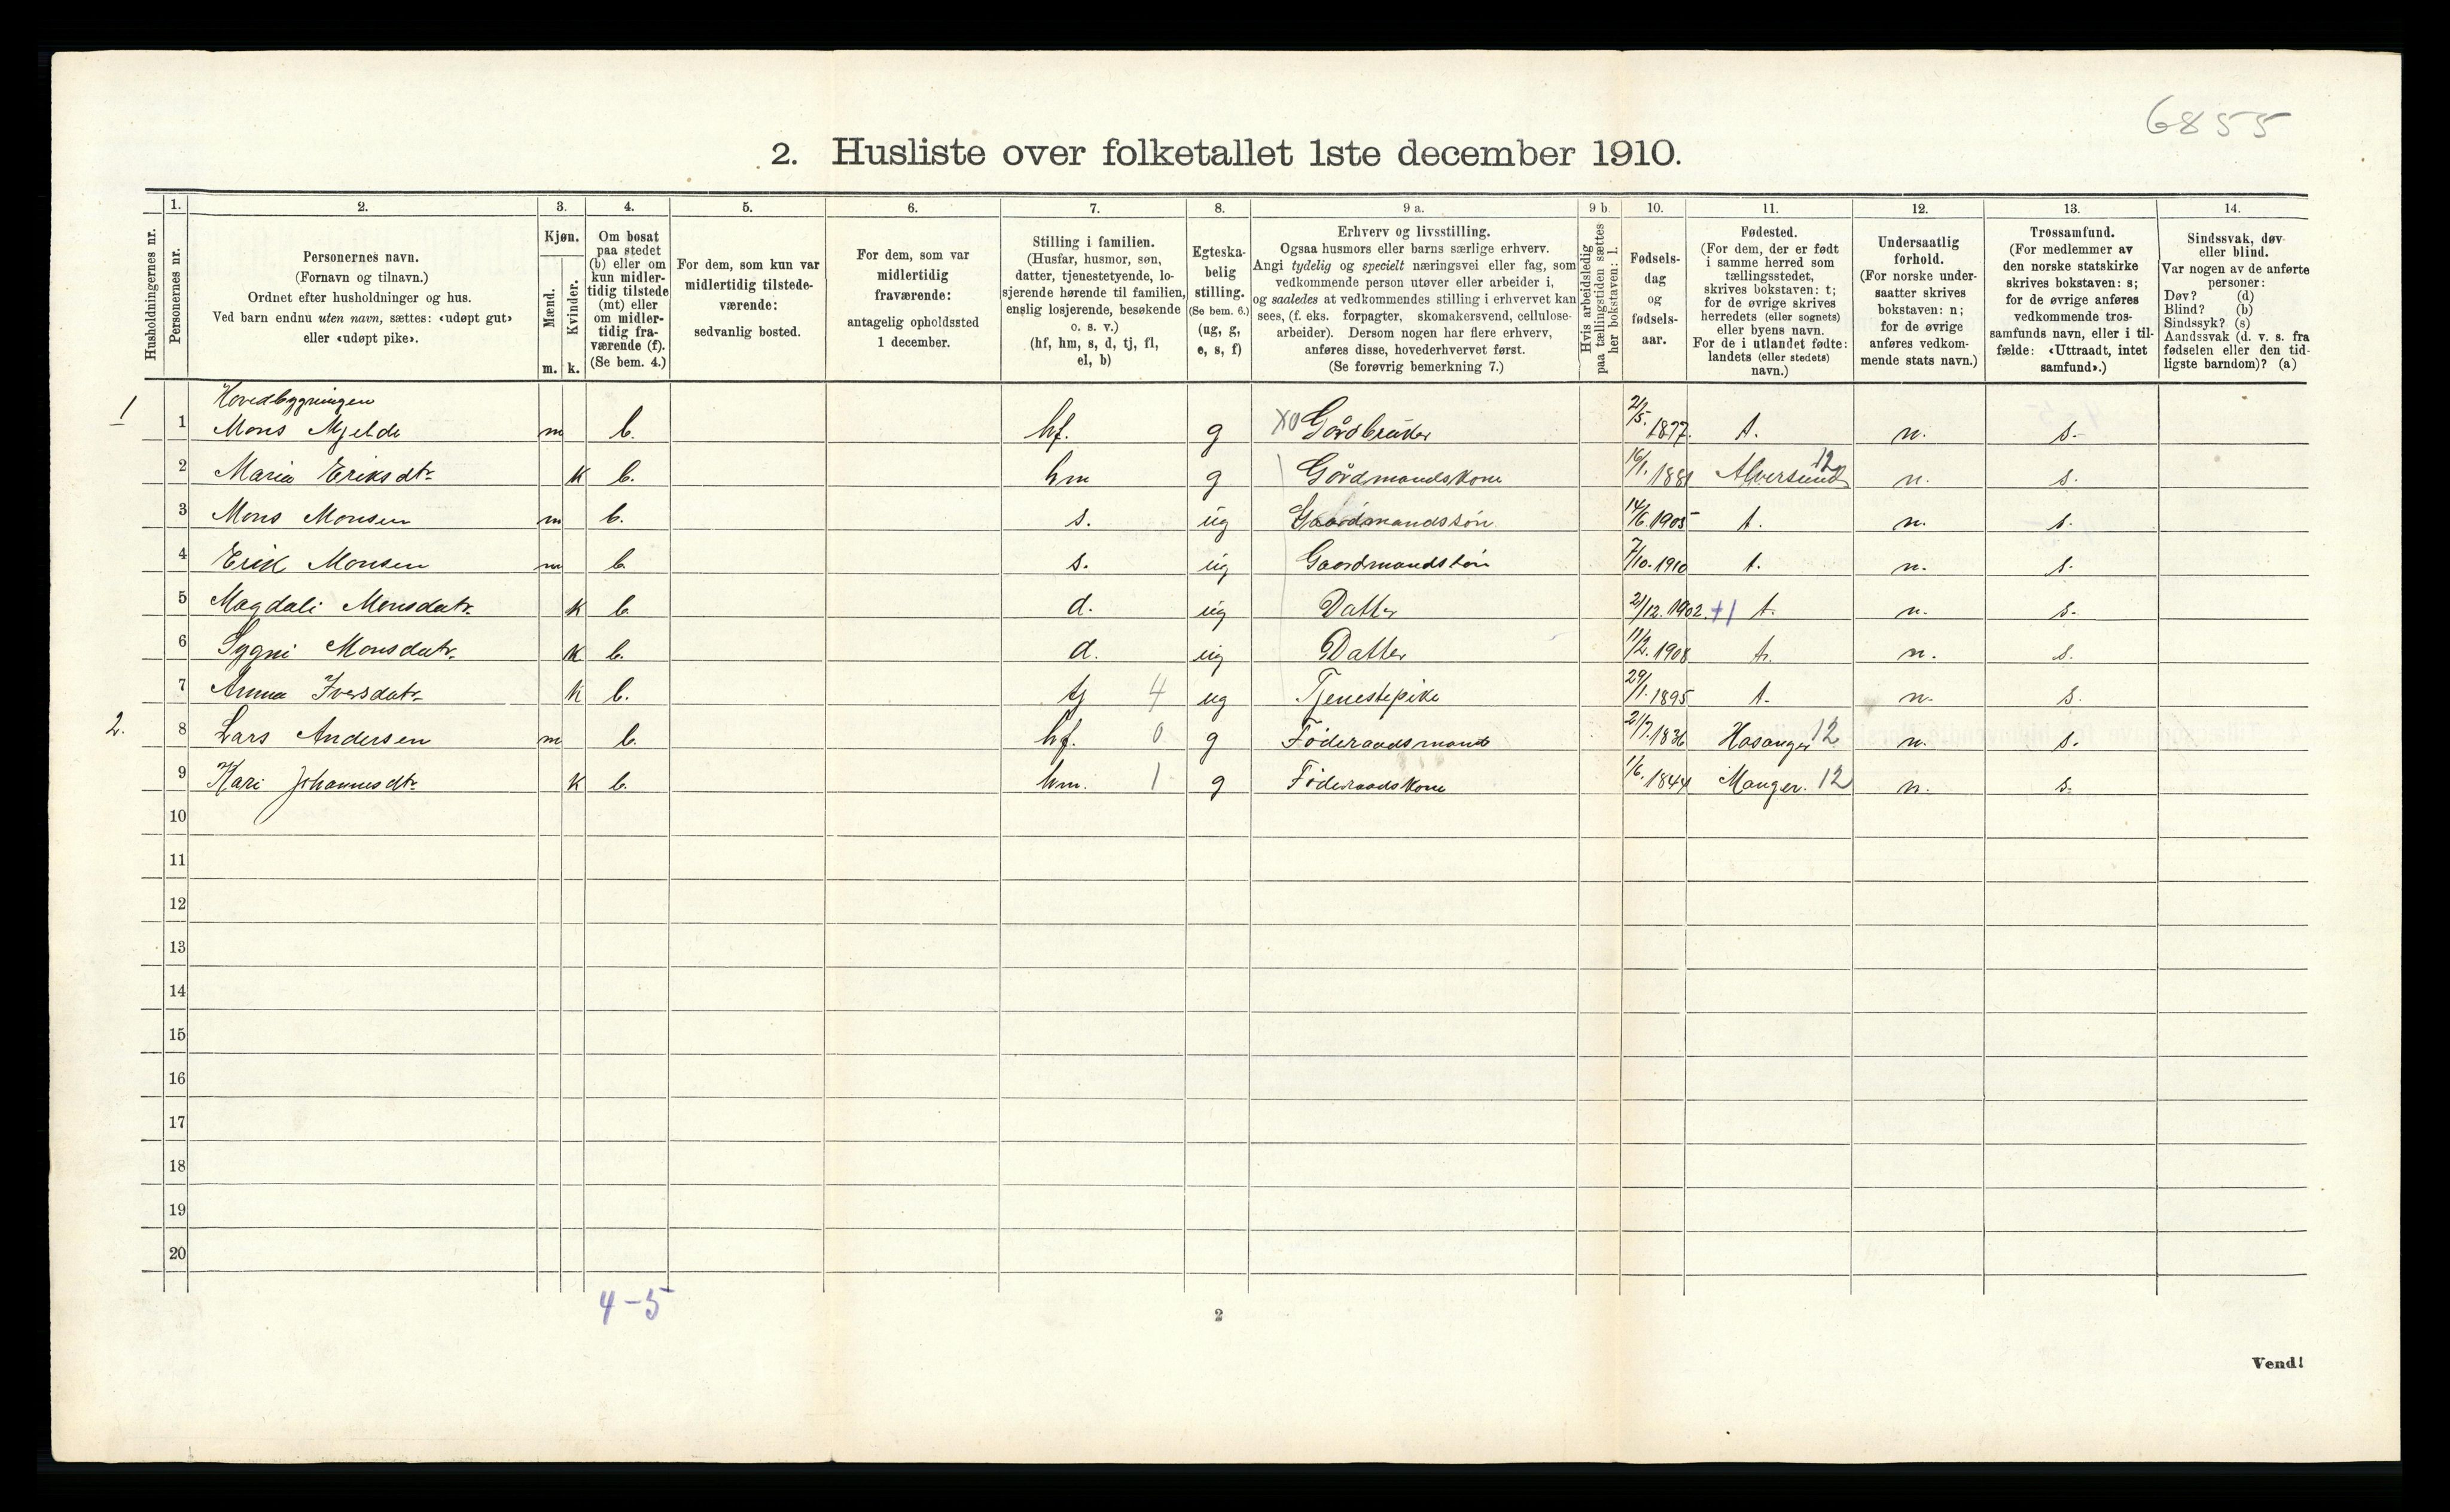 6855
2. Husliste over folketallet 1ste december 1910.
Husholdningernes nr.
1.
Personernes nr.
2.
Personernes navn.
(Fornavn og tilnavn.)
Ordnet efter husholdninger og hus.
Ved barn endnu uten navn, sættes: «udøpt gut»
eller «udøpt pike».
3.
Kjøn.
Mænd.
Kvinder.
m. k.
4.
Om bosat
paa stedet
(b) eller om
kun midler-
tidig tilstede
(mt) eller
om midler-
tidig fra-
værende (f).
(Se bem. 4.)
5.
For dem, som kun var
midlertidig tilstede-
værende:
sedvanlig bosted.
6.
For dem, som var
midlertidig
fraværende:
antagelig opholdssted
1 december.
7.
Stilling i familien.
(Husfar, husmor, søn,
datter, tjenestetyende, lo-
sjerende hørende til familien,
enslig losjerende, besøkende
o. s. v.)
(hf, hm, s, d, tj, fl,
el, b)
8.
Egteska-
belig
stilling.
(Se bem. 6.)
(ug, g,
e, s, f)
9 a.
Erhverv og livsstilling.
Ogsaa husmors eller barns særlige erhverv.
Angi tydelig og specielt næringsvei eller fag, som
vedkommende person utøver eller arbeider i,
og saaledes at vedkommendes stilling i erhvervet kan
sees, (f. eks. forpagter, skomakersvend, cellulose-
arbeider). Dersom nogen har flere erhverv,
anføres disse, hovederhvervet først.
(Se forøvrig bemerkning 7.)
9 b
Hvis arbeidsledig
paa tællingstiden sættes
her bokstaven: l.
10.
Fødsels-
dag
og
fødsels-
aar.
11.
Fødested.
(For dem, der er født
i samme herred som
tællingsstedet,
skrives bokstaven: t;
for de øvrige skrives
herredets (eller sognets)
eller byens navn.
For de i utlandet fødte:
landets (eller stedets)
navn.)
12.
Undersaatlig
forhold.
(For norske under-
saatter skrives
bokstaven: n;
for de øvrige
anføres vedkom-
mende stats navn.)
13.
Trossamfund.
(For medlemmer av
den norske statskirke
skrives bokstaven: s;
for de øvrige anføres
vedkommende tros-
samfunds navn, eller i til-
fælde: «Uttraadt, intet
samfund».)
14.
Sindssvak, døv
eller blind.
Var nogen av de anførte
personer:
Døv? (d)
Blind? (b)
Sindssyk? (s)
Aandssvak (d. v. s. fra
fødselen eller den tid-
ligste barndom)? (a)
Hovedbygningen
1 1 Mons Mjelde m b. hf. g X0 Gårdbruker 21/5. 1877. t. n. s.
2 Maria Eriksdtr. k b. hm g Gårdmandskone 16/1. 1881 Alversund 12 n. s.
3 Mons Monsen m b. s. ug Gaardmandssøn 14/6 1905 t. n. s.
4 Erik Monsen m b s. ug Gaardmandssøn 7/10. 1910 t. n. s.
5 Magdali Monsdatr. k b d. ug Datter 21/12. 1902. +1 t. n. s.
6 Sygni Monsdatr. k b. d. ug Datter 11/2. 1908 t. n. s.
7 Anna Iversdatr k b. tj 4 ug Tjenestepike 29/1. 1895 t. n. s.
2. 8 Lars Andersen m b. hf. 0 g Føderaadsmand 21/7. 1836 Hosanger 12 n. s.
9 Kari Johannesdtr. k b. hm. 1 g Føderaadskone 1/6. 1844 Manger. 12 n. s.
10
11
12
13
14
15
16
17
18
19
20
4-5
2
Vend!